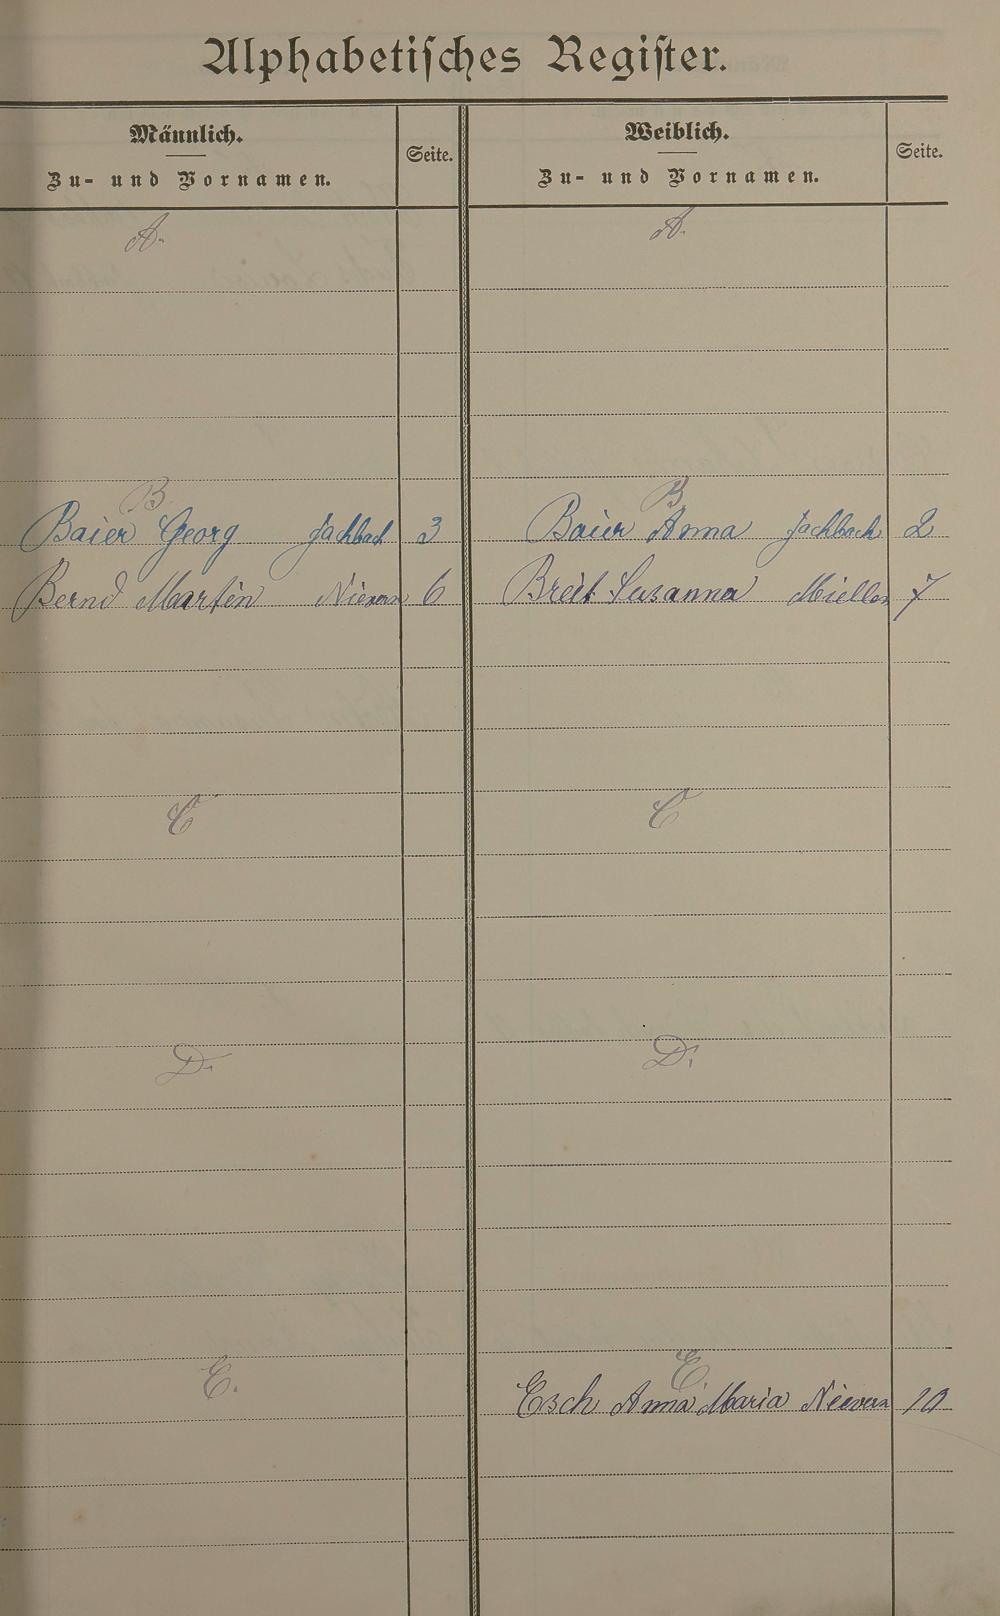 Alphabetisches Register.
Männlich. Seite. Weiblich. Seite.
Zu- und Vornamen. Zu- und Vornamen.
A. A.
B B
Baier Georg Fachbach 3 Baier Anna Fachbach 2
Bernd Martin Nievern 6 Breit Susanna Miellen 7
C C
D. D.
E. E.
Esch Anna Maria Nievern 10